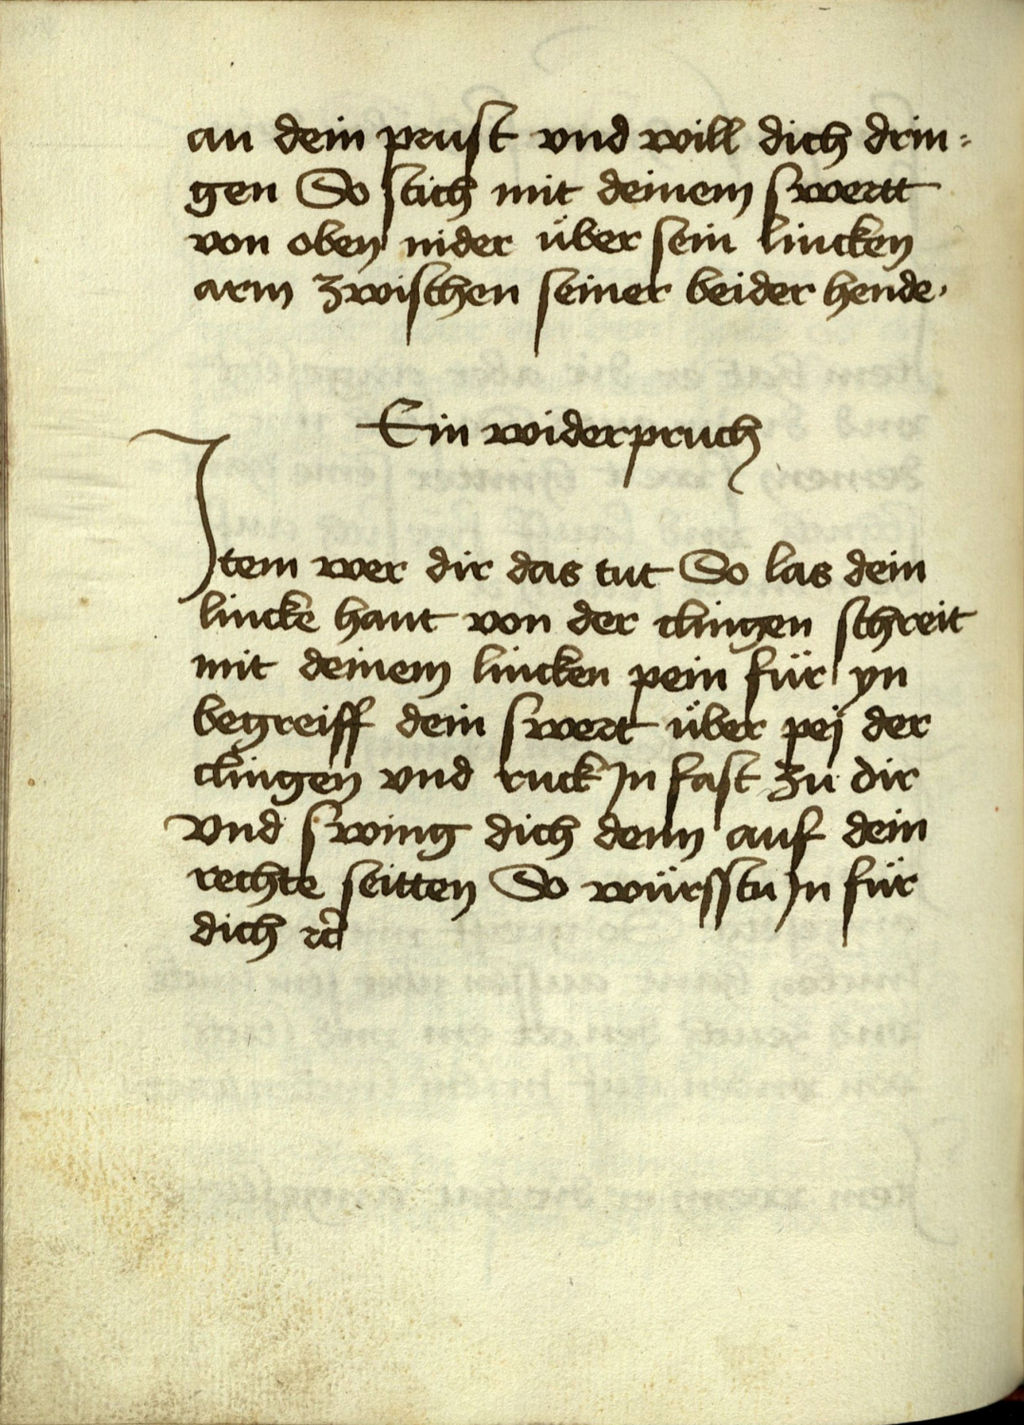 an dein prust vnd will dich drin=
gen So stich mit deinem swertt
von oben nider über sein lincken
arm zwischen seiner beider hende.
Ein widerpruch
Jtem wer dir das tut So las dein
lincke hant von der clingen schreit
mit deinem lincken pein für yn
begreiff dein swert über pej der
clingen vnd ruck Jn fast zu dir
vnd swing dich denn auf dein
rechte seitten So würsstu Jn für
dich rc